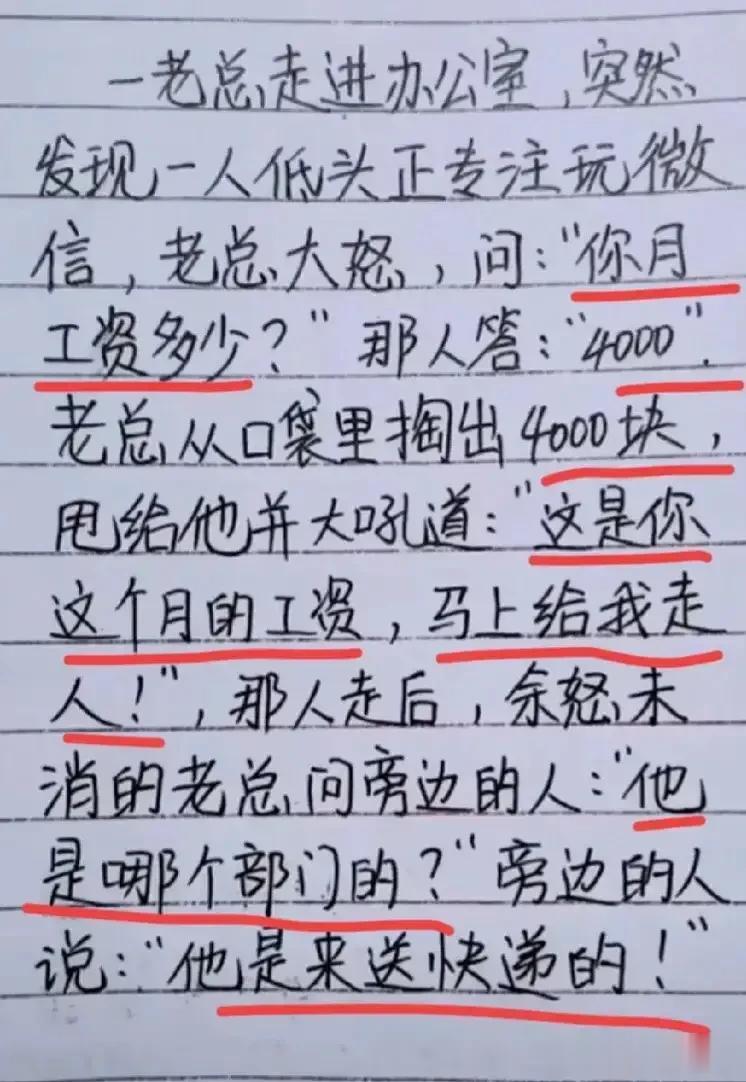 一老总走进办公室,突然
发现一人低头正专注玩微
信,老总大怒,问:"你月
工资多少?"那人答:"4000".
老总从口袋里掏出4000块,
甩给他并大吼道:"这是你
这个月的工资,马上给我走
人!",那人走后,余怒未
消的老总问旁边的人:"他
是哪个部门的?"旁边的人
说:"他是来送快递的!"